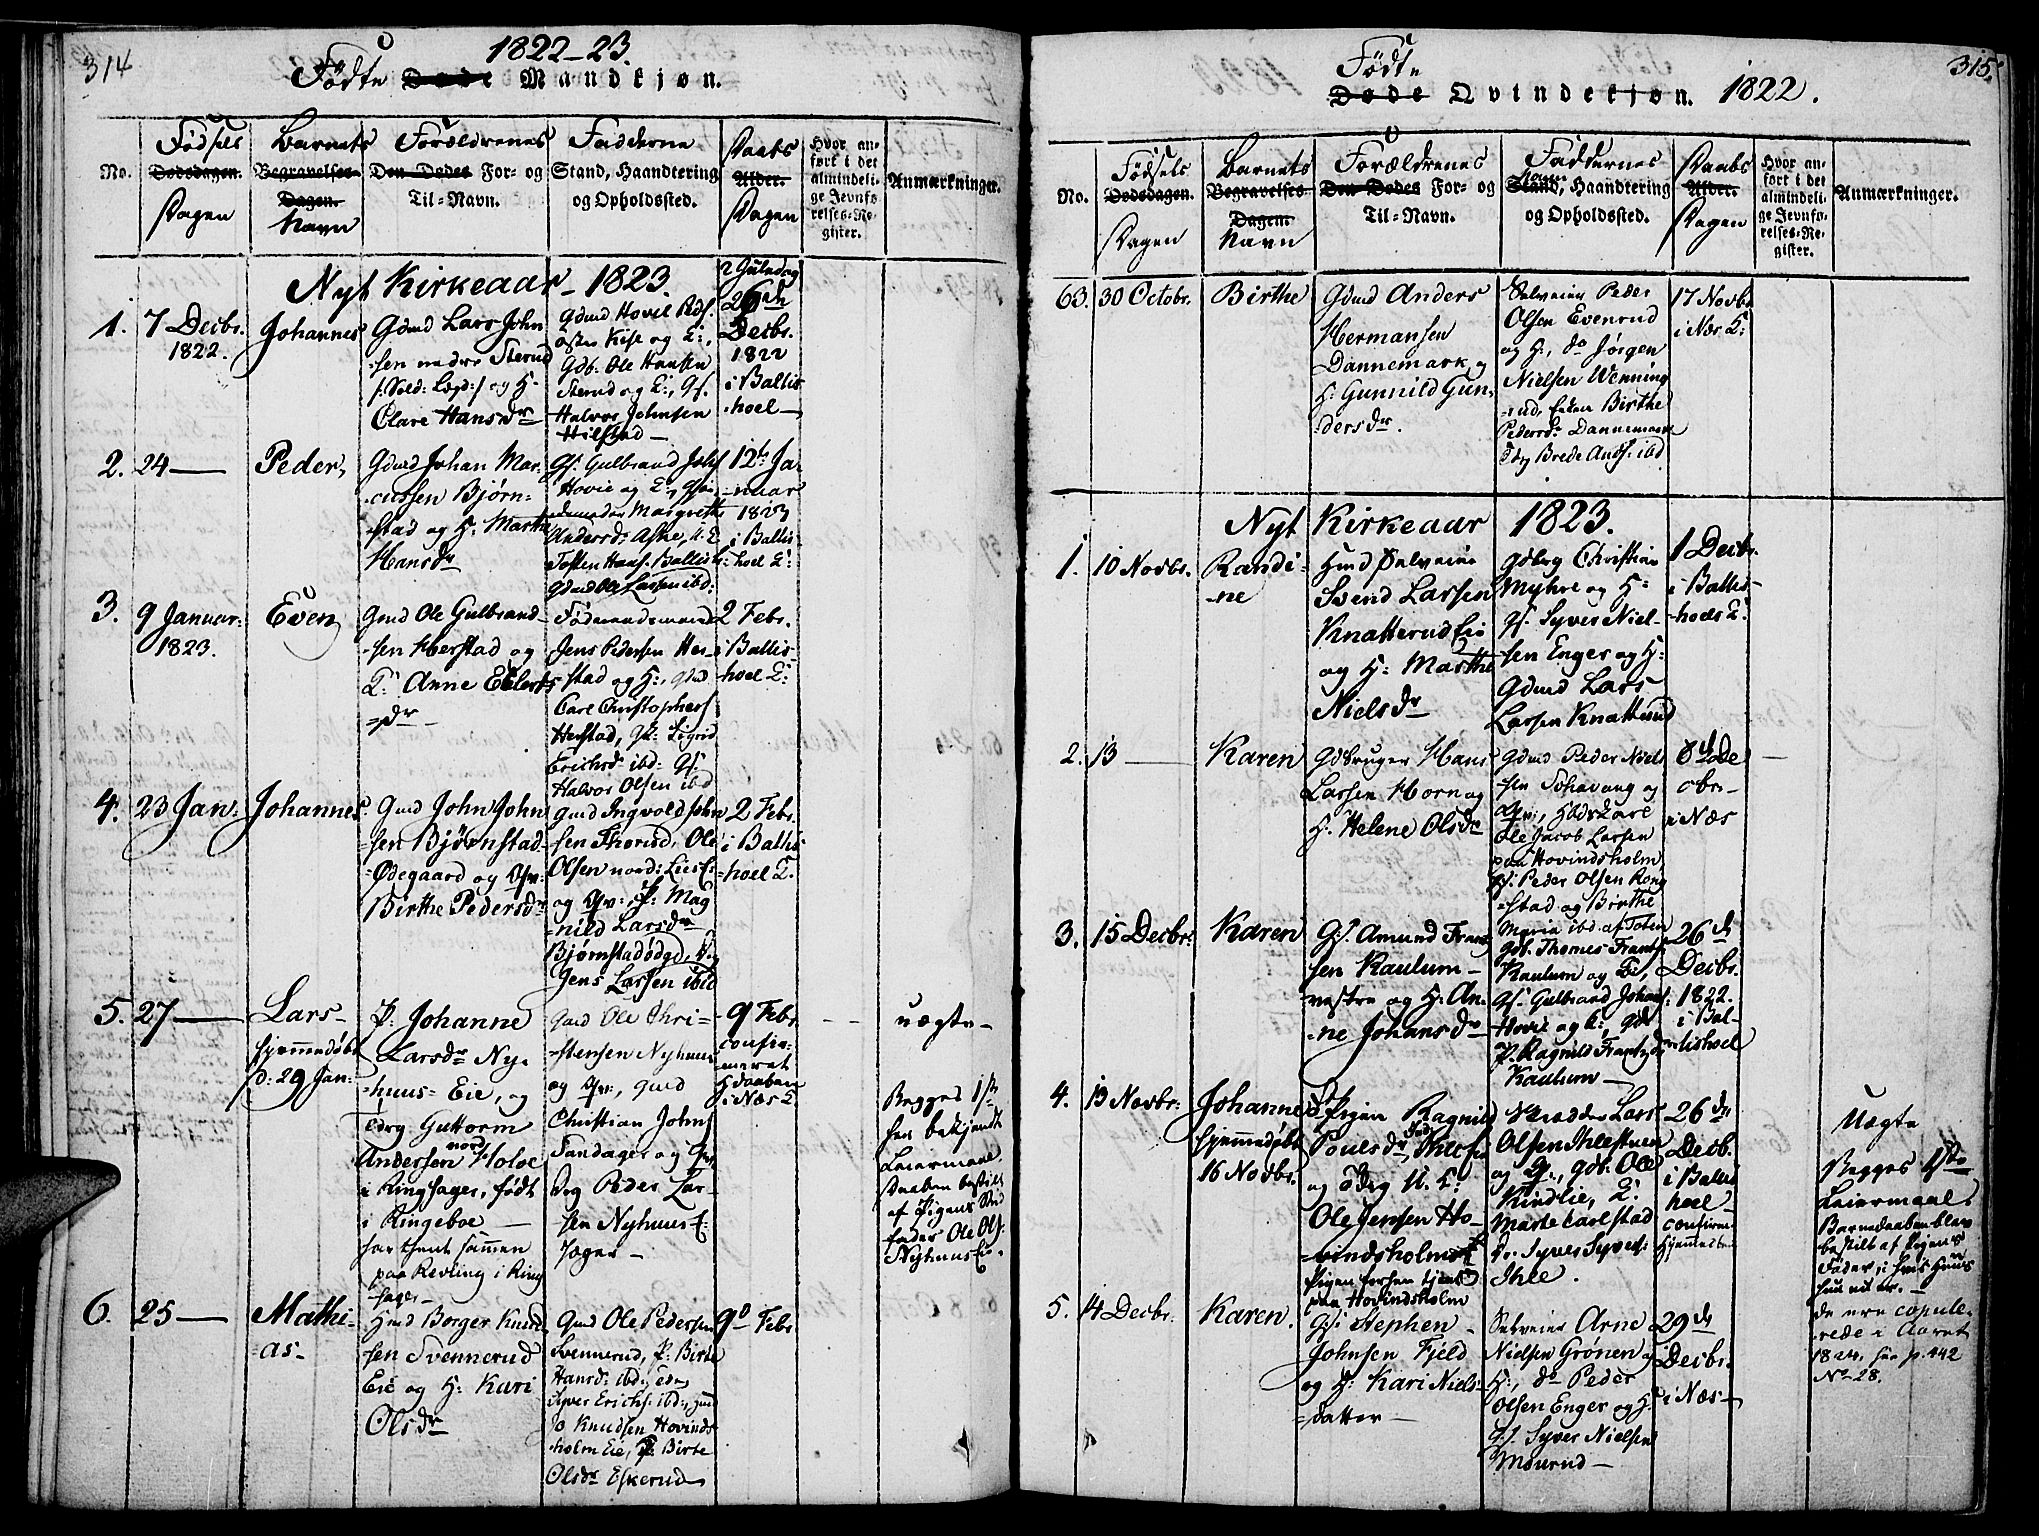 314
1822-23.
Fødte Døde Mandkjøn.
No.
Fødsels
Dødsdagen.
Dagen
Barnets
Begravelses-
Dagen.
Navn
Forældrenes
Den Dødes For- og
Til-Navn.
Faddernes
Stand, Haandtering
og Opholdssted.
Daabs
Alder.
Dagen
Hvor an-
ført i det
almindeli-
ge Jevnfø-
relses-Re-
gister.
Anmærkninger.
Nyt Kirkeaar - 1823
1.
7 Decbr.
1822.
Johannes
Gdmd Lars John
sen nedre Sterud
og H:
Clare Hansdr
og E:,
Gdb. Ole Hansen
Sterud og E:, Gs.
Halvor Johnsen
Hilstad
2 Juledag
26de
Decbr.
1822
i Baltis
hoel
2.
24
Peder,
Gdmd Johan Mar-
cussen Bjørn-
stad og H: Marthe
Hansdr
Gs. Gulbrand Johs
Hovie og E:,
Margrethe
Andersdr
Gdmd Ole Larsen ibd:
12te Ja-
nuar
1823
i Baltis
hoel E:
3.
9 Januar:
1823.
Even
Gmd Ole Gulbrand-
sen Herstad og
E: Anne Eilerts
dr
Jens Pedersen Her-
stad og H:, Gmd
Carl Christophers
Herstad, Pi: Sigrid
Erichsdr ibd: Gs.
Halvor Olsen ibd
2 Febr.
i Baltis
hoel E:
4.
23 Jan:
Johannes
Gmd John John
sen Bjørnstad-
Ødegaard og Qv:
Birthe Pedersdr
Gmd Ingvold John
sen Thorud, Ole
Olsen nord: Lie
og Qv: P: Mag
nild Larsdr
Bjørnstadødgd,
Jens Larsen ibid
2 Febr.
i Baltis
hoel E:
5.
27
Lars
hjemmedøbt
d: 29 Jan:
P: Johanne
Larsdr Ny-
huus-Eie, og
Edrg Guttorm
Andersen nord Holve
i Ringsager, født
i Ringeboe
har tjent sammen
paa Revling i Ring
sager
Gmd Ole Chri-
stensen Nyhuus
og Qv:, Gmd
Christian Johns
Sandager og Qv:
Peder Lar-
sen Nyhuus E.
9 Febr.
confir-
meret
Hdaaben
i Næs E
uægte
Begges 1ste
bekjendte
Leiermaal.
Daaben bestilt
af Pigens Sted
fader Ole Ols:
Nyhuus Eie.
6.
25
Mathi-
as
Hmd Borger Knud
sen Svennerud
Eie og H: Kari
Olsdr
Gmd Ole Pedersen
Svennerud, P: Birte
Hansdr ibd:,
Syver Erichs: ibd:, Hmd
O Knudsen Hovinds
holm Eie, P: Birte
Olsdr Eskerud
9de Febr.
315.
Fødte
Døde Qvindekjøn. 1822.
No.
Fødsels
Dødsdagen.
Dagen
Barnets
Begravelses-
Dagen.
Navn
Forældrenes
Den Dødes For- og
Til-Navn.
Faddernes
Navn
Stand, Haandtering
og Opholdssted.
Daabs
Alder.
Dagen
Hvor an-
ført i det
almindeli-
ge Jevnfø-
relses-Re-
gister.
Anmærkninger.
63.
30 Octobr.
Birthe
Gdmd Anders
Hermansen
Dannemark og
H: Gunnild Gun-
dersdr.
Selveier Peder
Olsen Evenrud
og H:, do Jørgen
Nielsen Wenning
rud, Enken Birthe
Pedersdr Dannemark
Edrg Brede Ands: ibd
17 Novbr
i Næs E:
Nyt Kirkeaar 1823.
1.
10 Novbr.
Randi-
ne
Hmd Selveier
Svend Larsen
Knatterud Eie
og H: Marthe
Nielsdr
Gdbrg Christian
Myhre og H:
Gs. Syver Niel-
sen Enger og H:
Gdmd Lars
Larsen Knatterud
1 Decbr.
i Baltis-
hoels E:
2.
13
Karen
Gdbruger Hans
Larsen Horn og
H: Helene Olsdr
Gdmd Peder Niels
sen og
Qv:,
Ole Jacob Larsen
paa Hovindsholm
Gs: Peder Olsen Rong
stad og Birthe
Maria ibd. af Toten
8de De
cbr-
i Næs
3.
15 Decbr.
Karen
Gs. Amund Frantz
sen Kaulum
vestre og H: An-
ne Johansdr
Gdb. Thomes Frants
Kaulum og E:,
Gs. Gulbrand Johans:
Hovie og E:,
P. Ragnild Frantzdr
Kaulum
26de
Decbr.
1822.
i Bal-
tishoel
4.
13 Novbr:
Johannes
hjemmedøbt
16 Novbr.
Pigen Ragnild
Poulsdr, Ihle
og Edrg U. E:
Ole Jensen Ho-
vindsholm
Pigen forhen tjent
paa Hovindsholm
Skrædder Lars
Olsen Ihlestuen
og Q:, Gdb. Ole
Kindlie, E:
Marte Carlstad
Dr. Syver Syvers:
Ihle.
26de
Decbr.
i Baltis
hoel
confirm-
Hjemmeda-
Uægte
Begges 1ste
Leiermaal
Barnedaaben blev
bestilt af Pigens
Fader, i hvis Huus
hun er.
de ere copule-
rede i Aaret
1824, see p. 442
No 28.
5.
14 Decbr.
Karen.
Gs: Stephen
Johnsen Fjeld
og H: Kari Niels-
datter
Selveier Arne
Nielsen Grønen og
H:, do Peder
Olsen Enger og H:
Gs. Syver Nielsen
Mourud
29de
Decbr.
i Næs